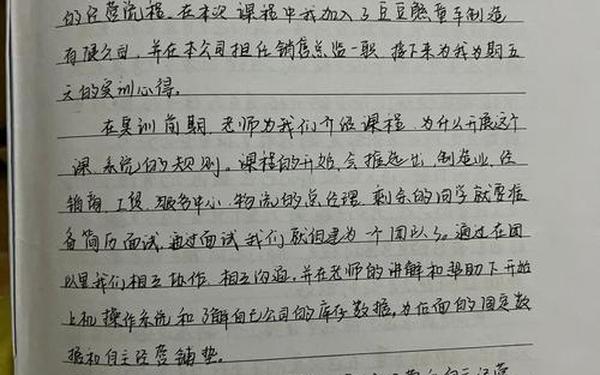 的经营流程。在本次课程中我加入了豆豆熊童车制造
有限公司，并在本公司担任销售总监一职，接下来为我为期五
天的实训心得。
在实训前期，老师为我们介绍课程，为什么开展这个
课，系统的规则。课程的开始，会推选出，制造业，经
销商，工贸，服务中心，物流的总经理，剩余的同学就要准
备简历面试，通过面试我们就组建为一个团队了。通过在团
队里我们相互协作，相互沟通，并在老师的讲解和帮助下开始
上机操作系统和了解自己公司的库存数据，为后面的固定数
据和自主经营铺垫。
自主经营